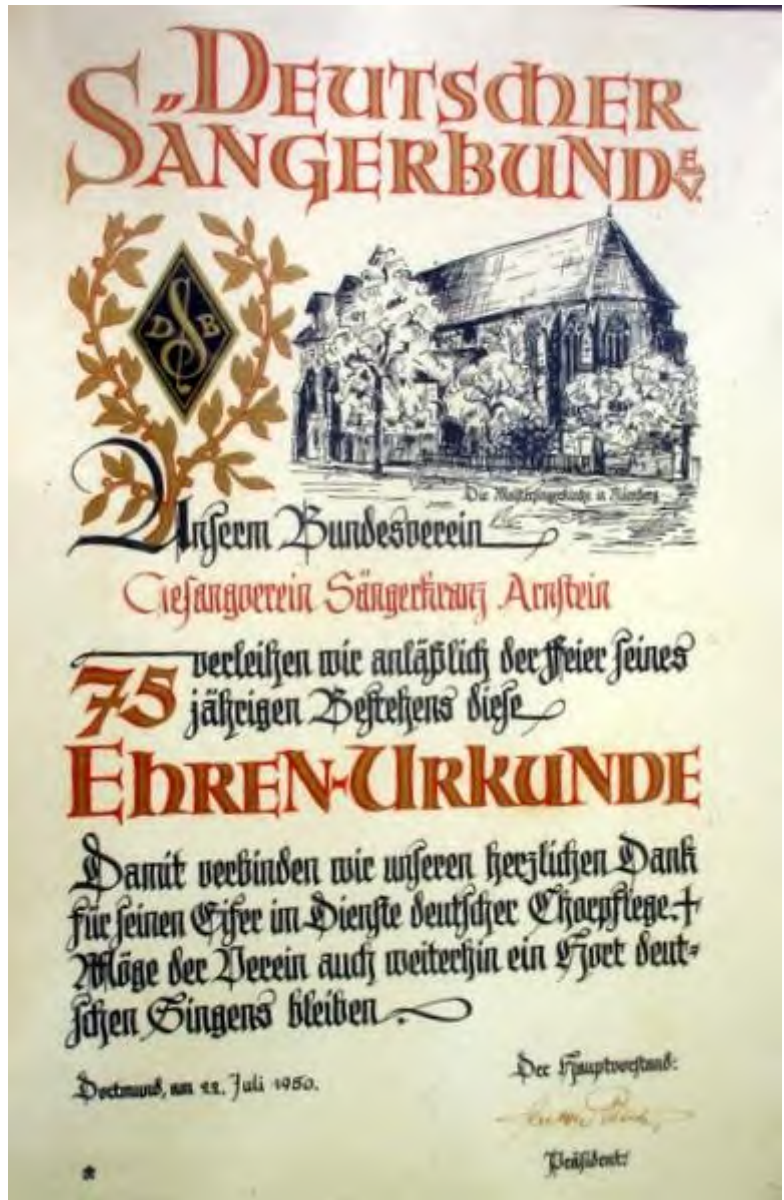 „DEUTSCHER
SÄNGERBUND" E.V.
D S B
Die Meistersingerkirche in Nürnberg
Unserm Bundesverein
Gesangverein Sängerkranz Arnstein
75 verleihen wir anläßlich der Feier seines
jährigen Bestehens diese
EHREN-URKUNDE
Damit verbinden wir unseren herzlichen Dank
für seinen Eifer im Dienste deutscher Chorpflege. +
Möge der Verein auch weiterhin ein Hort deut=
schen Singens bleiben.
Dortmund, am 22. Juli 1950.
Der Hauptvorstand:
Präsident: